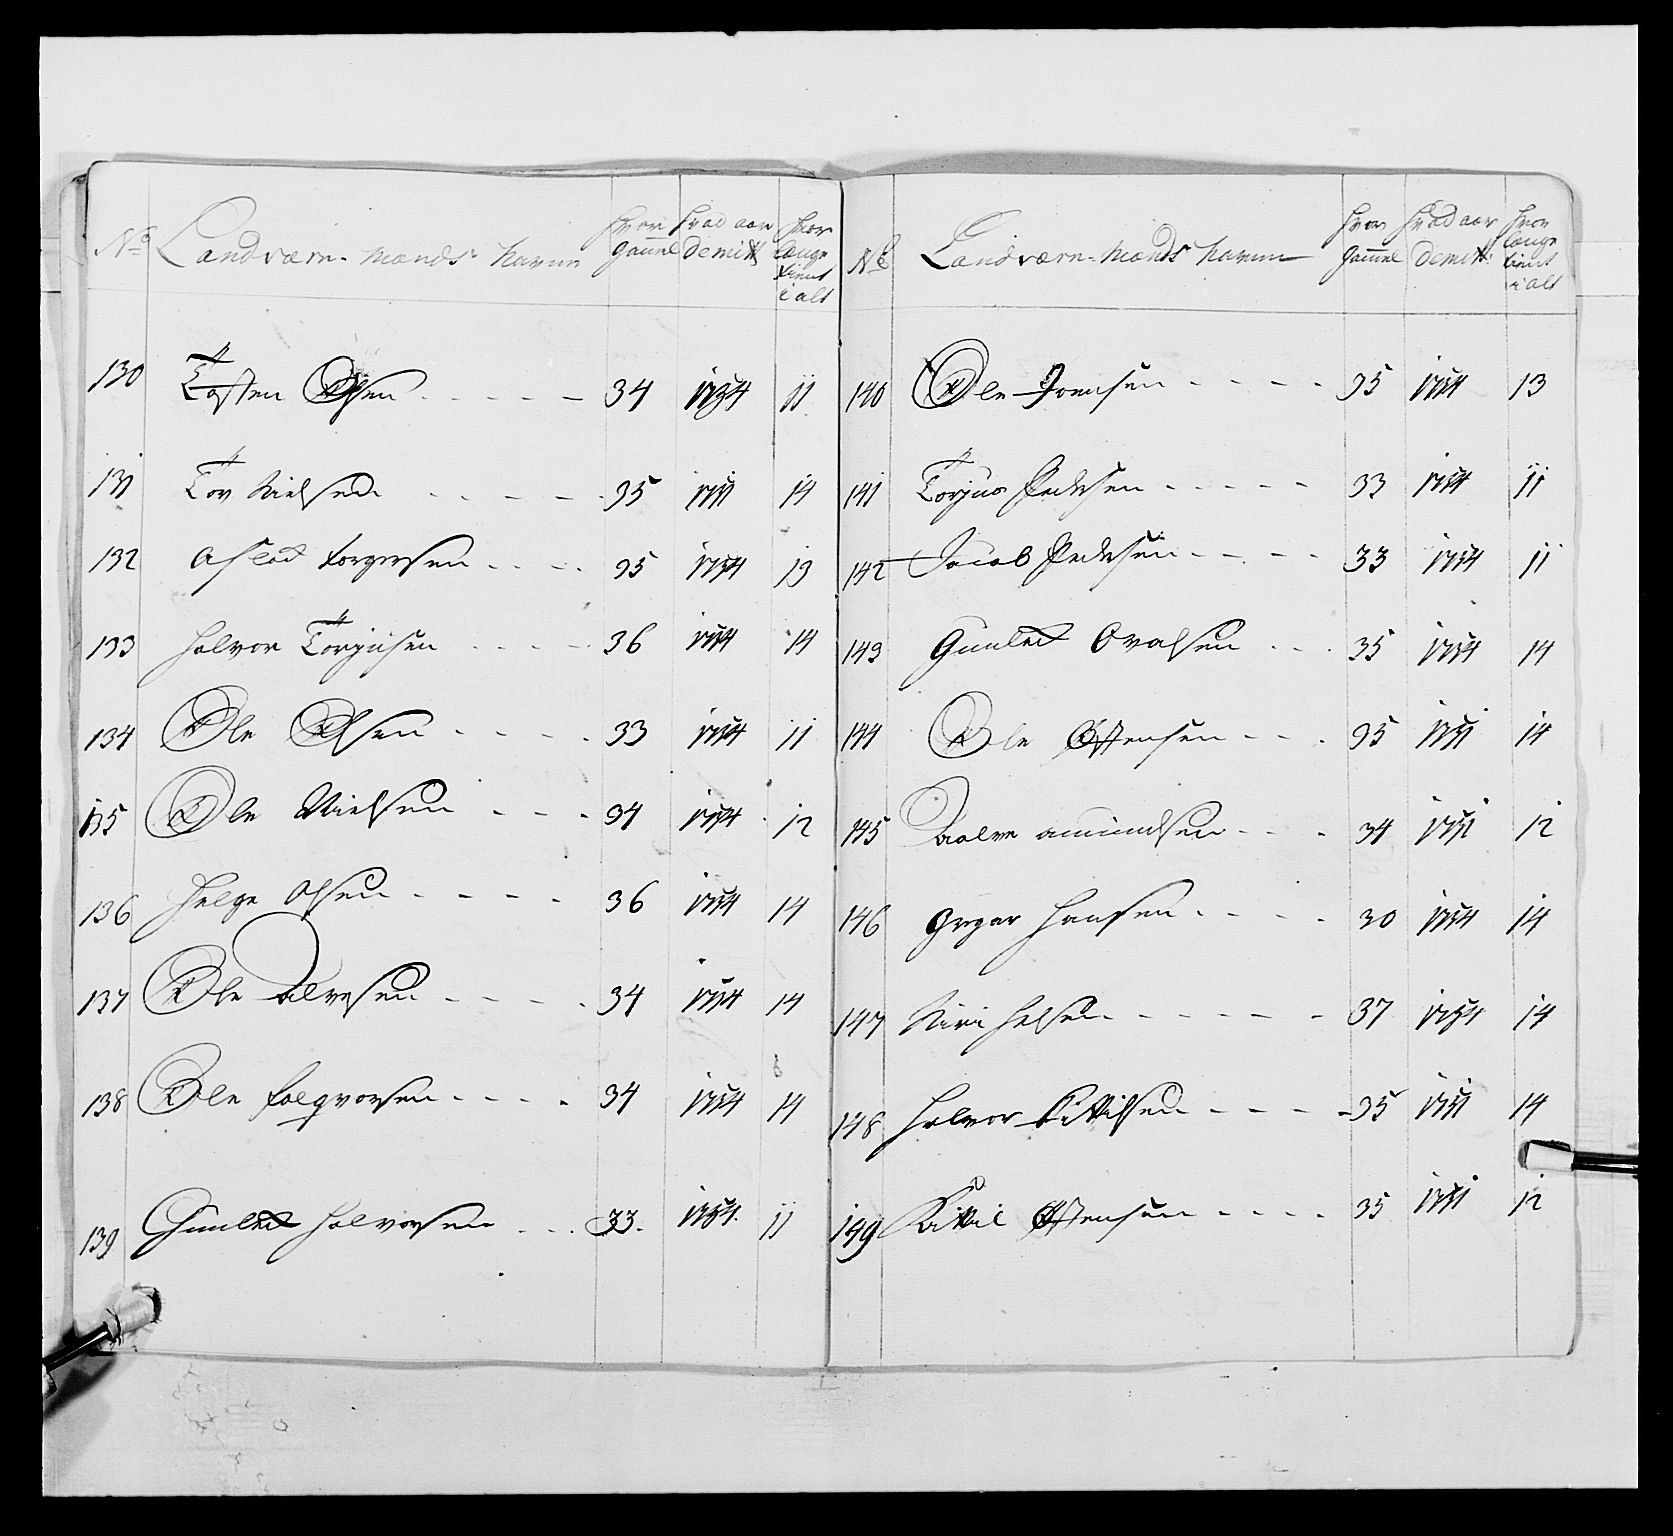 No Landværn-Mænds Navne hvor gammel hvad aar Demitt hvor længe tient i alt
130 Tosten Olsen 34 1754 11
131 Tov Nielsen 35 1751 14
132 Aslod Torgersen 35 1754 13
133 Halvor Torgusen 36 1754 14
134 Ole Olsen 33 1754 11
135 Ole Nielsen 34 1754 12
136 Helge Olsen 36 1754 14
137 Ole Alvesen 34 1754 14
138 Ole Folqvorsen 34 1754 14
139 Gunled Halvorsen 33 1754 11
No Landværn-Mænds Navne hvor gammel hvad aar Demitt: hvor længe tient i alt
140 Ole Joensen 35 1754 13
141 Torjus Pedersen 33 1754 11
142 Jacob Pedersen 33 1754 11
143 Gunled Ovalsen 35 1754 14
144 Ole Østensen 35 1751 14
145 Aalve Amundsen 34 1751 12
146 Greger Hansen 30 1754 14
147 Kiri Helsen 37 1754 14
148 Halvor Kittilsen 35 1751 14
149 Kittil Østensen 35 1751 12